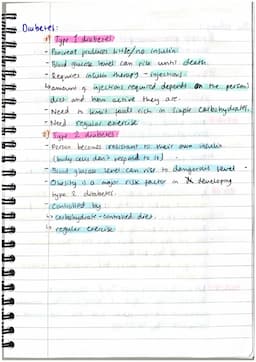 Diabetes:
1) Type 1 diabetes
- Pancreas produces little/no insulin
- Blood glucose level can rise until death.
- Requires insulin therapy - injections
→ amount of injections required depends on the person's
diet and how active they are.
- Need to limit foods rich in simple carbohydrates.
- Need regular exercise
2) Type 2 diabetes
- Person becomes resistant to their own insulin
(body cells don't respond to it).
- Blood glucose level can rise to dangerous level
- Obesity is a major risk factor in developing
type 2 diabetes.
- Controlled by:
↳ carbohydrate-controlled diet.
↳ regular exercise